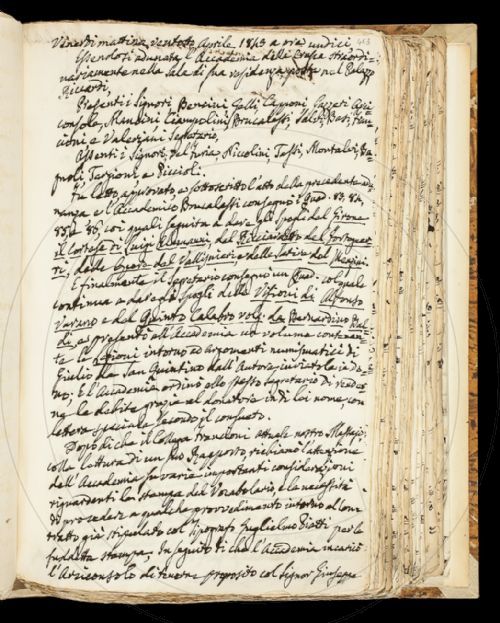 Venerdì mattina ventotto Aprile 1843 a ore undici
Essendosi adunata l'Accademia della Crusca straordi=
nariamente nella Sala di sua residenza posta nel Palazzo
Riccardi,
Presenti i Signori Bencini Galli Capponi Gazzeri Arci=
consolo, Mannini Ciampolini, Brucalassi, Valeri, Becchi,
cioni e Valeriani Segretario,
Assenti i Signori Del Furia, Niccolini, Tassi, Montalvi,
Targioni e Puccioli.
Fu letto approvato e sottoscritto l'atto della precedente adu=
nanza e l'Accademico Brucalassi consegnò i Quad. 83, 84,
85, e 86, coi quali seguita a dare gli spogli del Girone
il Cortese di Luigi Alamanni, del Ricciardetto del Forteguer=
ri, delle Opere del Vallisnieri e delle Satire del Menzini.
E finalmente il Segretario consegnò un Quad. col quale
continua a dare gli spogli delle Visioni di Alfonso
Varano e del Quinto Calabro volg. da Bernardino Bal=
di, e presentò all'Accademia un volume contenen=
te le Lezioni intorno ad argomenti numismatici di
Giulio da San Quintino dall'Autore inviatole in do=
no. E l'Accademia ordinò allo stesso Segretario di render=
ne le debite grazie al donatore in di lei nome, con
lettera speciale secondo il consueto.
Dopo di che il Collega attuale nostro Massajo,
colla lettura di un suo Rapporto, richiamò l'attenzione
dell'Accademia su varie importanti considerazioni
riguardanti la stampa del Vocabolario, e la necessità
di procedere a qualche provvedimento intorno al Con=
tratto già stipulato col Tipografo Guglielmo Piatti per la
suddetta stampa. In seguito di che l'Accademia incaricò
l'Arciconsolo di tenere proposito col Signor Giuseppe